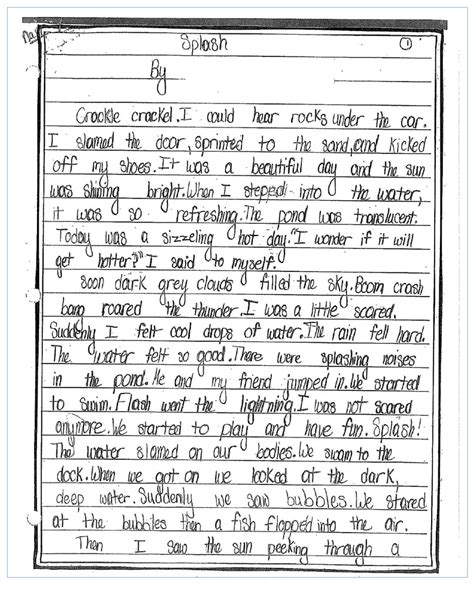 Splash 1
By
Crackle crackel. I could hear rocks under the car.
I slamed the door, sprinted to the sand, and kicked
off my shoes. It was a beautiful day and the sun
was shining bright. When I stepped into the water,
it was so refreshing. The pond was translucent.
Today was a sizzeling hot day. "I wonder if it will
get hotter?" I said to myself.
soon dark grey clouds filled the sky. Boom crash
bang roared the thunder. I was a little scared.
Suddenly I felt cool drops of water. The rain fell hard.
The water felt so good. There were splashing noises
in the pond. Me and my friend jumped in. We started
to swim. Flash went the lightning. I was not scared
anymore. We started to play and have fun. Splash!
The water slamed on our bodies. We swam to the
dock. When we got on we looked at the dark,
deep water. Suddenly we saw bubbles. We stared
at the bubbles then a fish flopped into the air.
Then I saw the sun peeking through a